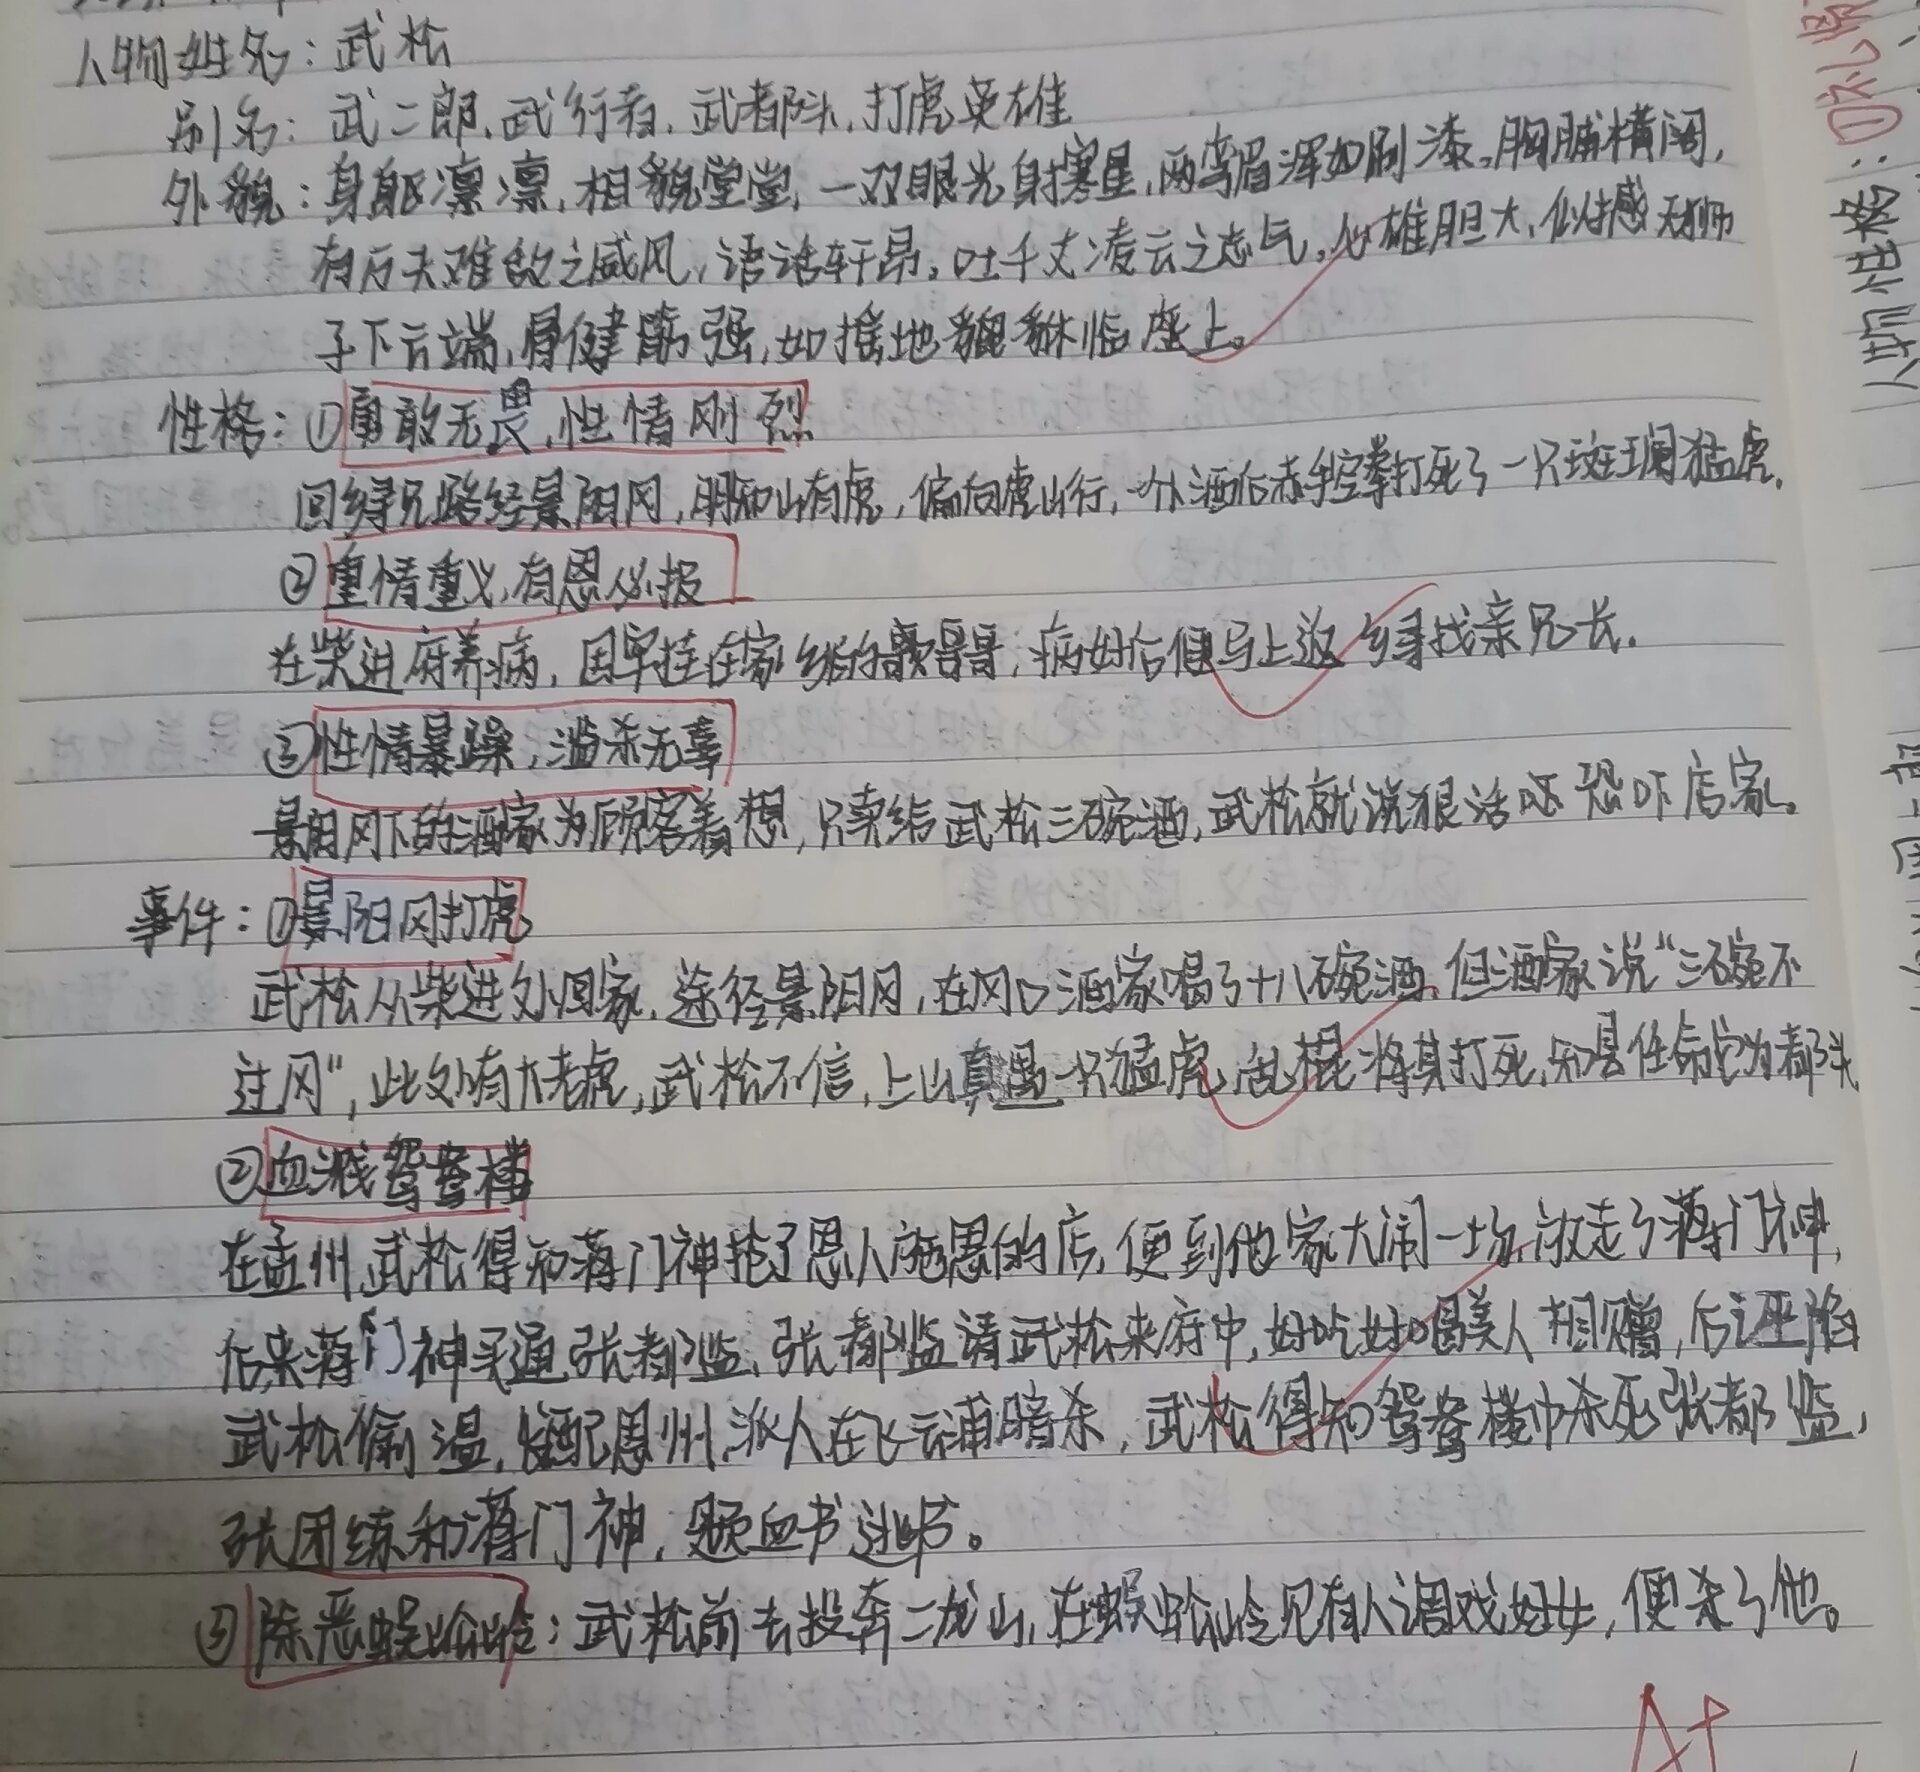 人物姓名：武松
别名：武二郎、武行者、武都头、打虎英雄
外貌：身躯凛凛，相貌堂堂，一双眼光射寒星，两弯眉浑如刷漆。胸脯横阔，
有万夫难敌之威风，语话轩昂，吐千丈凌云之志气。心雄胆大，似撼天狮
子下云端，骨健筋强，如摇地貔貅临座上。
性格：①勇敢无畏，性情刚烈
回乡寻兄路经景阳冈，明知山有虎，偏向虎山行，一外酒后赤手空拳打死了一只斑斓猛虎。
②重情重义，有恩必报
在柴进府养病，因牵挂在家乡的哥哥，病好后便马上返乡寻找亲兄长。
③性情暴躁，滥杀无辜
景阳冈下的酒家为顾客着想，只卖给武松三碗酒，武松就说狠话恐吓店家。
事件：①景阳冈打虎
武松从柴进处回家，途径景阳冈，在冈口酒家喝了十八碗酒，但酒家说“三碗不
过冈”，此处有大老虎，武松不信，上山真遇一只猛虎，乱棍将其打死，知县任命它为都头
②血溅鸳鸯楼
在孟州，武松得知蒋门神抢了恩人施恩的店，便到他家大闹一场，放走了蒋门神，
后来蒋门神买通张都监，张都监请武松来府中，好吃好喝美人相赠，后诬陷
武松偷温，发配恩州，派人在飞云浦暗杀，武松得知鸳鸯楼中杀死张都监，
张团练和蒋门神，题血书逃书。
③除恶蜈蚣岭：武松前去投奔二龙山，在蜈蚣岭见有人调戏妇女，便杀了他。
A+
人物性格：